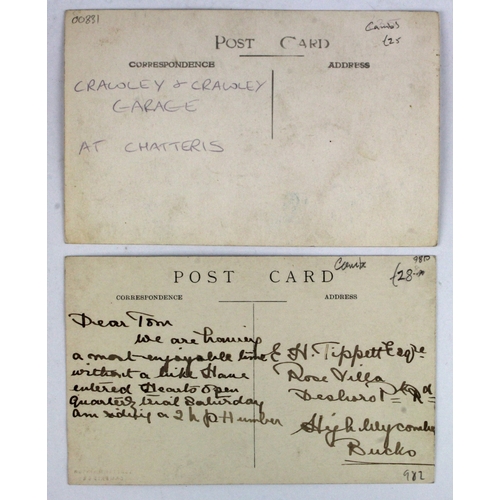 00831
Cambs
£25
POST CARD
CORRESPONDENCE
ADDRESS
CRAWLEY & CRAWLEY
GARAGE
AT CHATTERIS
Cambs
980
£28
POST CARD
CORRESPONDENCE
ADDRESS
Dear Tom
we are having
a most enjoyable time
without a hike Have
entered Hearts Open
quarterly trial Saturday
am riding a 2 h p Humber
E H. Tippett Esqre
Rose Villa
Desboro Rd
High Wycombe
Bucks
982